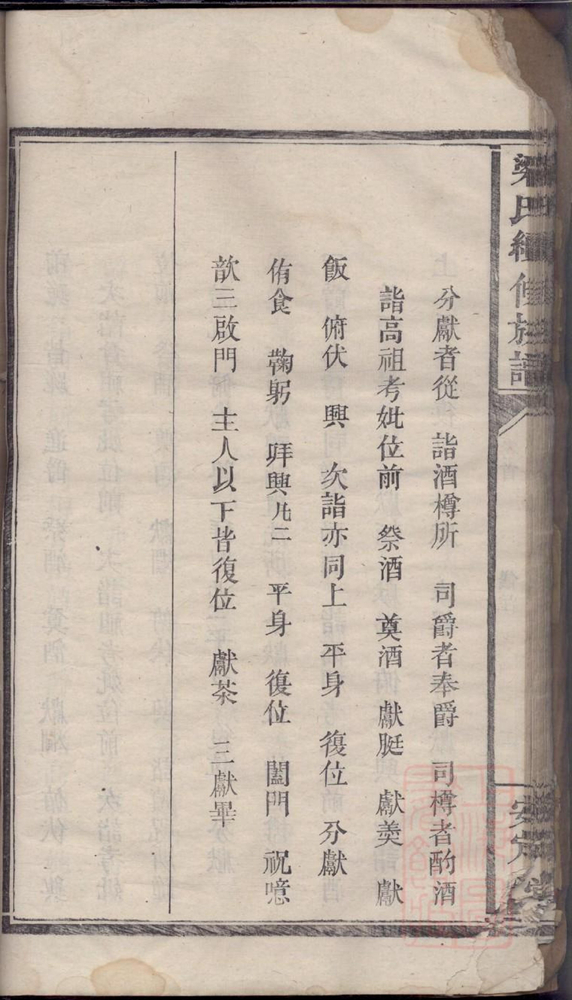 梁氏續修族譜
分獻者從　詣酒樽所　司爵者奉爵　司樽者酌酒
詣高祖考妣位前　祭酒　奠酒　獻脡　獻羮　獻
飯　俯伏　興　次詣亦同上　平身　復位　分獻
侑食　鞠躬　拜興凡二　平身　復位　闔門　祝噫
歆三啟門　主人以下皆復位　獻茶　三獻畢
安定